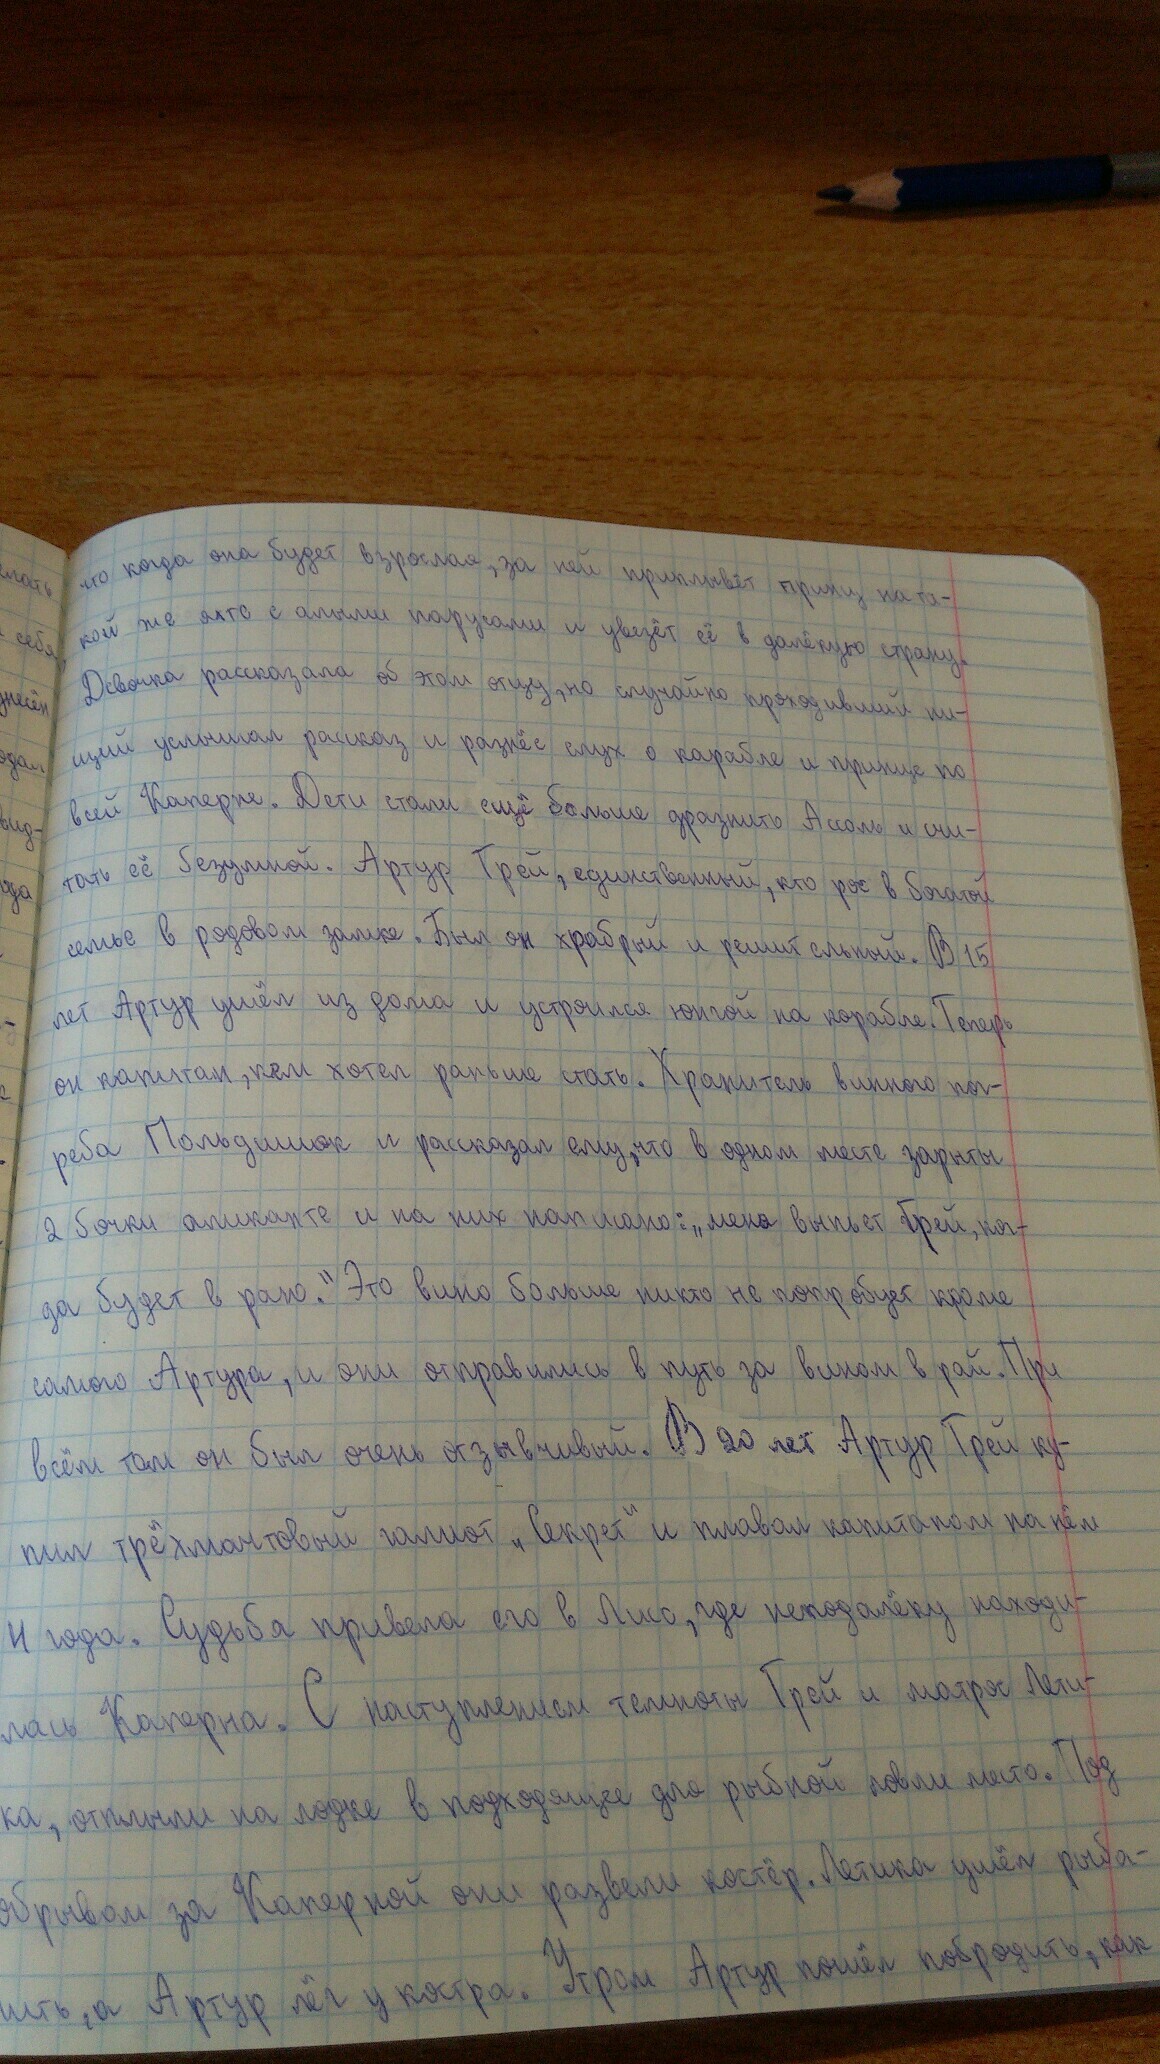 что когда она будет взрослая, за ней приплывёт принц на та-
кой же яхте с алыми парусами и увезёт её в далёкую страну.
Девочка рассказала об этом отцу, но случайно проходивший ни-
щий услышал рассказ и разнёс слух о карабле и принце по
всей Каперне. Дети стали ещё больше дразнить Ассоль и счи-
тать её безумной. Артур Грей, единственный, кто рос в богатой
семье в родовом замке. Был он храбрый и решительный. В 15
лет Артур ушёл из дома и устроился юнгой на корабле. Теперь
он капитан, кем хотел раньше стать. Хранитель винного пог-
реба Польдишок и рассказал ему, что в одном месте зарыты
2 бочки аликанте и на них написано: „меня выпьет Грей, ког-
да будет в раю." Это вино больше никто не попробует кроме
самого Артура, и они отправились в путь за вином в рай. При
всём том он был очень отзывчивый. В 20 лет Артур Грей ку-
пил трёхмачтовый галиот „Секрет" и плавал капитаном на нём
4 года. Судьба привела его в Лисс, где неподалёку находи-
лась Каперна. С наступлением темноты Грей и матрос Лети-
ка, отплыли на лодке в подходящее для рыбной ловли место. Под
обрывом за Каперной они развели костёр. Летика ушёл рыба-
чить, а Артур лёг у костра. Утром Артур пошёл побродить, как
елать
себя,
днесён
одал
вид-
гда